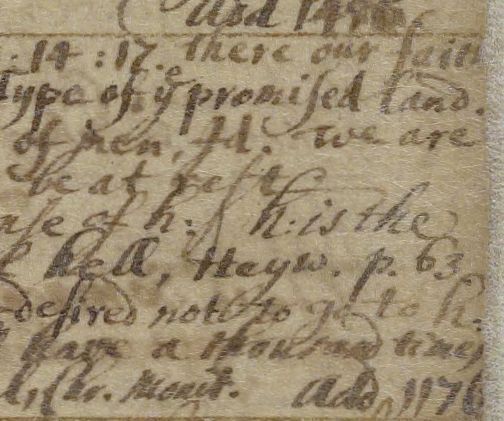 Add 14
. 14 : 17. there our faith
Type of yᵉ promiſed land.
of men, &d. We are
be at reſt
of h: h: is the
hell, Heyw. p. 63
deſired not to go to h.
have a thousand times
Chr. Monit. Add, 1176